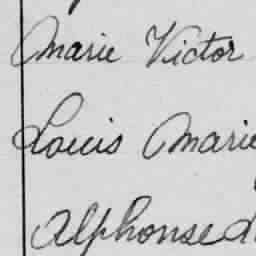 Marie Victor
Louis Marie
Alphonse